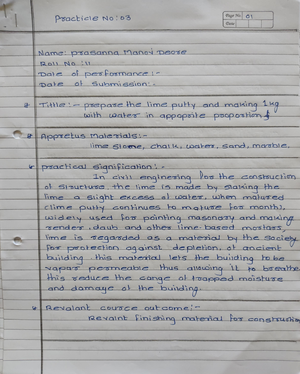 Practicle No:03
Page No. 01
Date
Name: prasanna Manoj Deore
Roll No :11
Date of performance :-
Date of submission:-
* Tittle :- prepare the lime putty and making 1 kg
with water in appoprite proportion
* Appretus Materials:-
lime stone, chalk, water, sand, marble.
* practical signification:-
In civil enginering for the construction
of structure. the lime is made by slaking the
lime a slight excess of water, when matured
clime putty continues to mature for months
widely used for pointing masonary and making
render daub and other lime based mortars,
lime is regarded as a material by the society
for protection against depletion, of ancient
building. this material lets the building to be
vapar permeable thus allowing it to breathe
this reduce the cange of trapped moisture
and damage ot the building.
* Revalant cource outcome:-
Revaint finishing material for construction